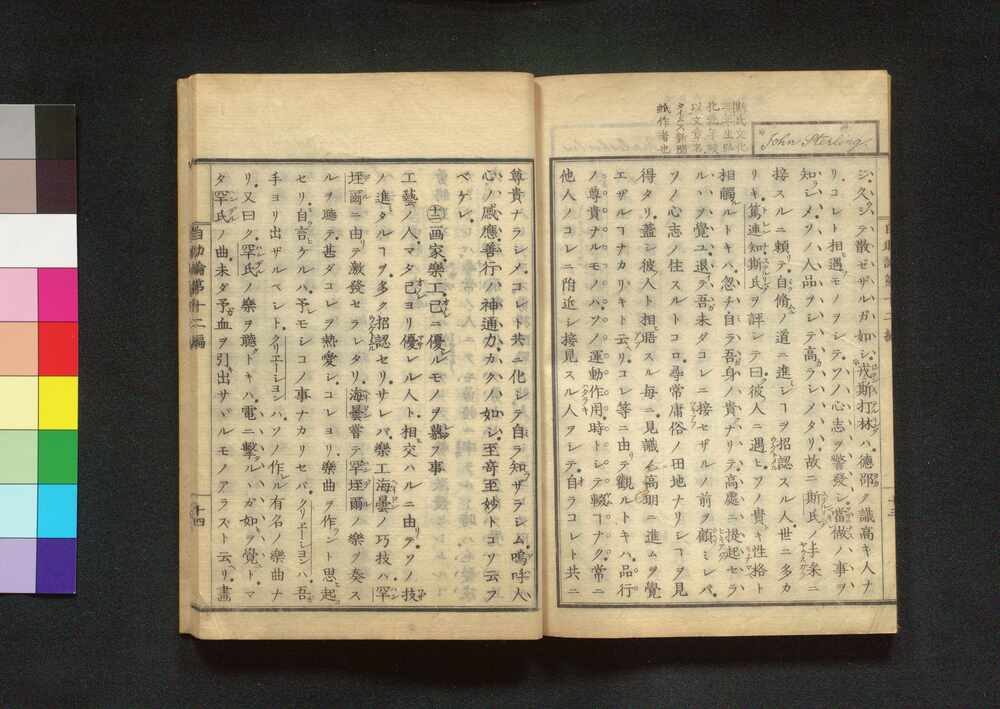 "John Sterling"
斯氏文化
三年生弘
化元年歿
以文章名
タイムス新聞
紙作者也
ジ久シテ散ゼザルガ如シ戎斯打林ハ德邵ノ識高キ人ナ
リコレト相遇モノヲシテソノ心志ヲ警發シ當做ノ事ヲ
知シメソノ人品ヲシテ高ラシメタリ故ニ斯氏ノ手采ニ
接スルニ頼テ自脩ノ道ニ進シヿヲ招認スル人世ニ多カ
リキ篤連知斯氏ヲ評シテ曰彼人ニ遇ヒソノ貴キ性格ト
相觸ルトキハ忽チ自ラ吾身ノ貴ナリテ高處ニ提起セラ
ルヽヲ覺ユ退テ吾未ダコレニ接セザルノ前ヲ顧ミレバ
ワノ心志ノ住スルトコロ尋常庸俗ノ田地ナリシヿヲ見
得タリ蓋シ彼人ト相晤スル毎ニ見識ノ高明ニ進ムヲ覺
エザルヿナカリキト云リコレ等ニ由テ觀ルトキハ品行
ノ尊貴ナルモノハソノ運動作用時トシテ輟ヿナク常ニ
他人ノコレニ附近シ接見スル人ヲシテ自ラコレト共ニ
尊貴ナラシメコレト共ニ化シテ自ラ知ザラシム嗚呼人
心ノ感應善行ノ神通力カクノ如シ至奇至妙トコソ云フ
ベケレ
十二畫家樂工己ニ優ルモノヲ慕フ事
工藝ノ人マタ己ヨリ優レル人ト相交ハルニ由テソノ技
ノ進タルヿヲ多ク招認セリサレバ樂工海曇ノ巧技ハ罕
垤爾ニ由テ激發セラレタリ海曇嘗テ罕垤爾ノ樂ヲ奏ス
ルヲ聽テ甚ダコレヲ熱愛シコレヨリ樂曲ヲ作ント思起
セリ自言ケルハ予モシコノ事ナカリセバクリエーションハ吾
手ヨリ出ザルベシトクリエーションハソノ作ル有名ノ樂曲ナ
リ又曰ク罕氏ノ樂ヲ聽トキハ電ニ擊ルヽガ如ヲ覺トマ
タ罕氏ノ曲未ダ予血ヲ引出サヾルモノアラズト云リ畫
自助論第十二編
十四